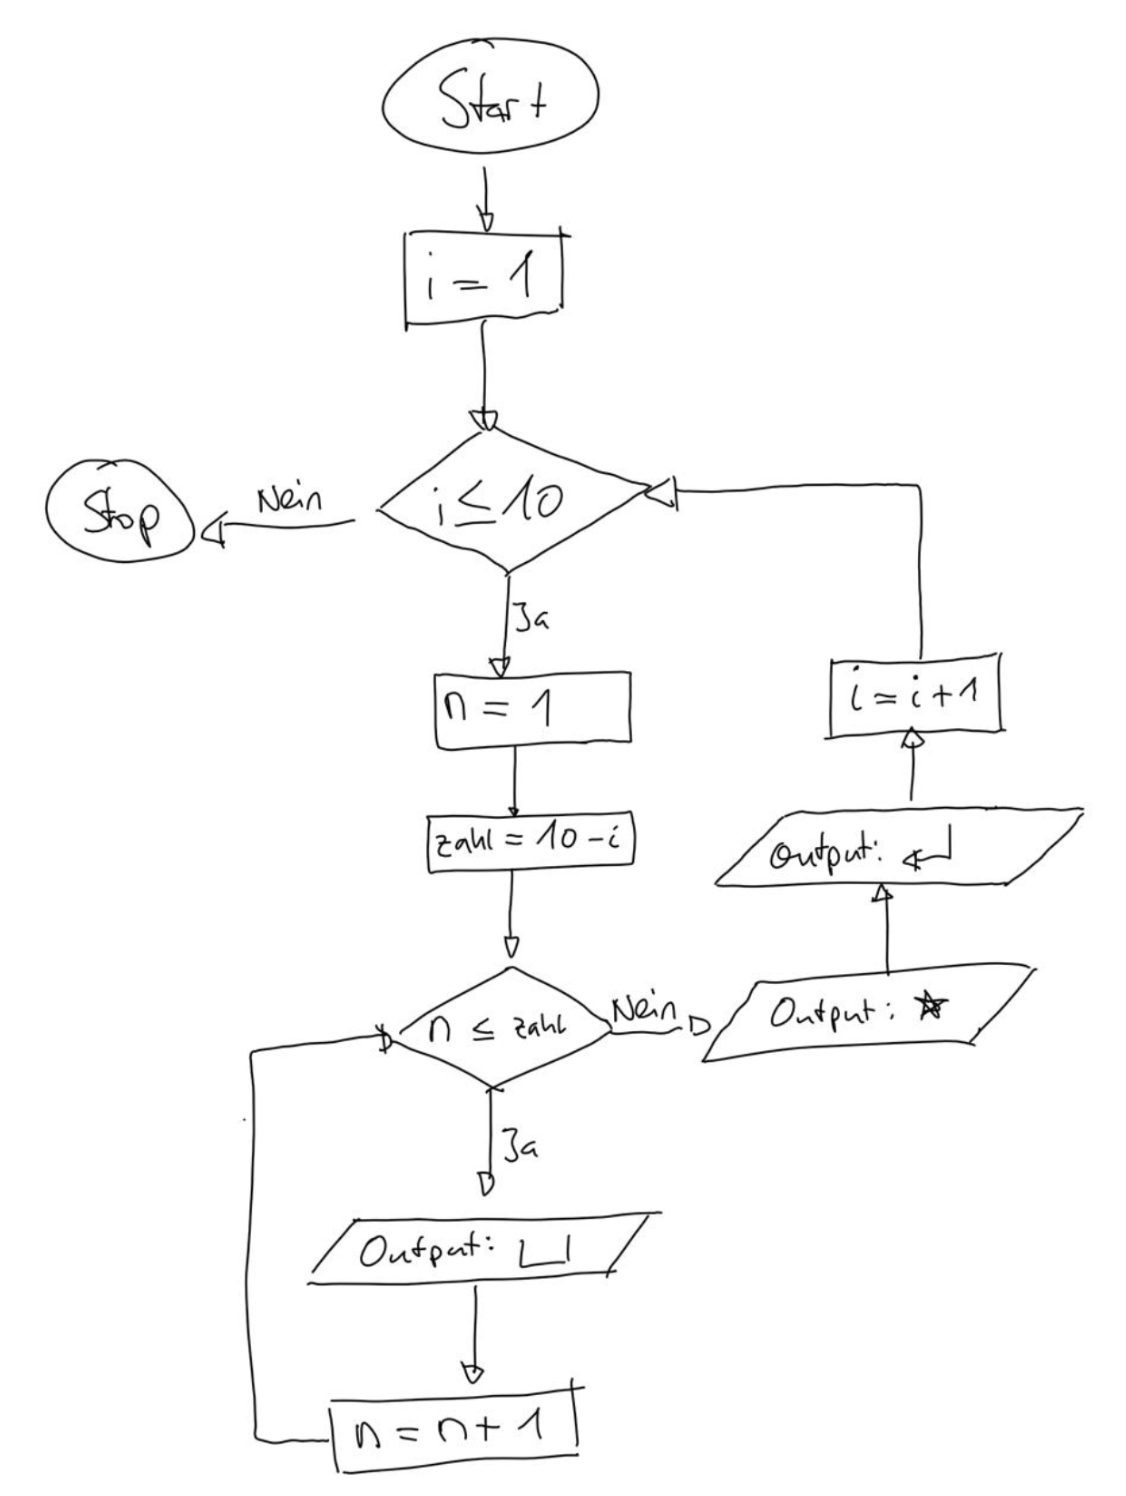 Start
i = 1
i ≤ 10
Nein
Stop
Ja
n = 1
zahl = 10 - i
n ≤ zahl
Nein
Output: ☆
Output: ↵
i = i + 1
Ja
Output: ␣
n = n + 1